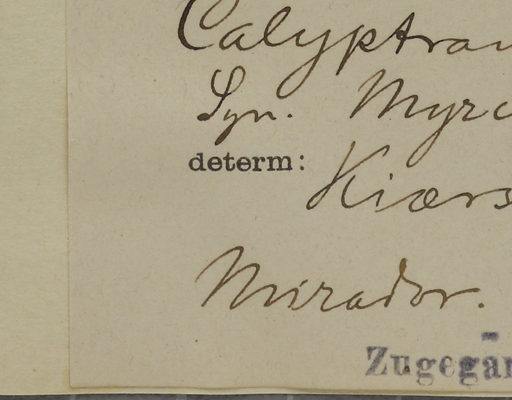 Calyptran
Syn. Myrc
determ: Kiærs
Mirador.
Zugegän